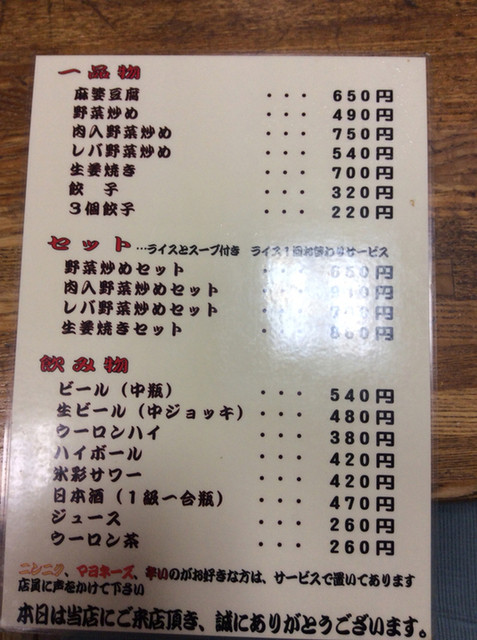 一品物
麻婆豆腐 ・・・ 650円
野菜炒め ・・・ 490円
肉入野菜炒め ・・・ 750円
レバ野菜炒め ・・・ 540円
生姜焼き ・・・ 700円
餃 子 ・・・ 320円
3個餃子 ・・・ 220円
セット …ライスとスープ付き ライス1回お替わりサービス
野菜炒めセット ・・・ 650円
肉入野菜炒めセット ・・・ 円
レバ野菜炒めセット ・・・ 円
生姜焼きセット ・・・ 860円
飲み物
ビール（中瓶） ・・・ 540円
生ビール（中ジョッキ） ・・・ 480円
ウーロンハイ ・・・ 380円
ハイボール ・・・ 420円
氷彩サワー ・・・ 420円
日本酒（1級一合瓶） ・・・ 470円
ジュース ・・・ 260円
ウーロン茶 ・・・ 260円
ニンニク、マヨネーズ、辛いのがお好きな方は、サービスで置いてあります
店員に声をかけて下さい
本日は当店にご来店頂き、誠にありがとうございます。